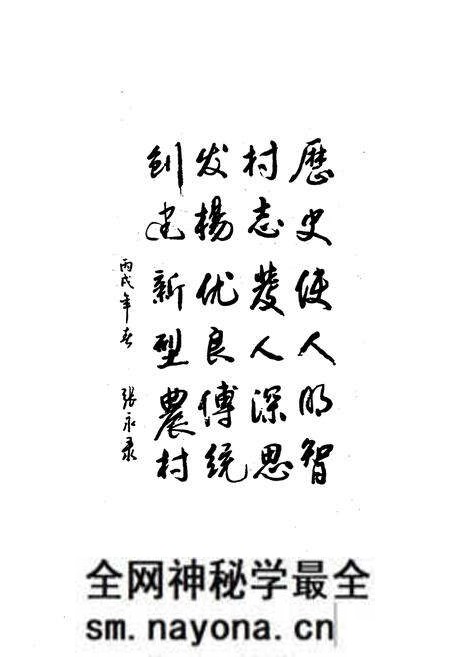 歷史使人明智
村志發人深思
发楊优良傳统
创建新型農村
丙戌年春 張永录
全网神秘学最全
sm.nayona.cn